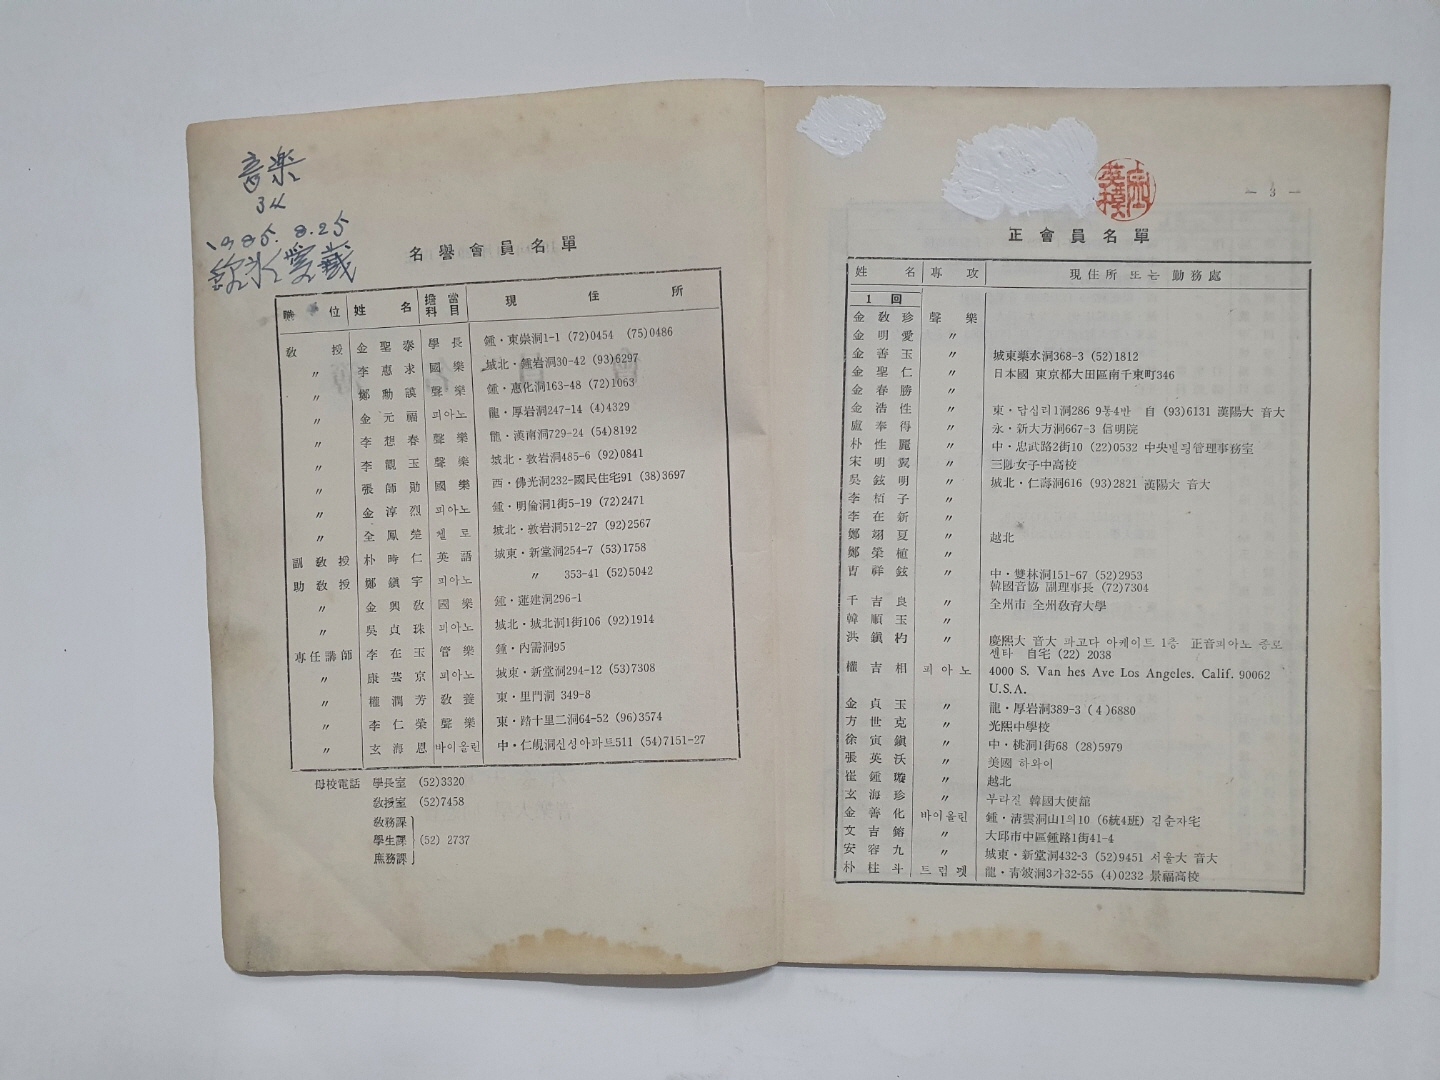 音楽
34
1985. 8. 25
愛蔵
名譽會員名單
職位 姓名 擔當科目 現住所
敎授 金聖泰 學長 鍾・東崇洞1-1 (72)0454 (75)0486
〃 李惠求 國樂 城北・鍾岩洞30-42 (93)6297
〃 鄭勳謨 聲樂 鍾・惠化洞163-48 (72)1063
〃 金元福 피아노 龍・厚岩洞247-14 (4)4329
〃 李想春 聲樂 龍・漢南洞729-24 (54)8192
〃 李觀玉 聲樂 城北・敦岩洞485-6 (92)0841
〃 張師勛 國樂 西・佛光洞232-國民住宅91 (38)3697
〃 金淳烈 피아노 鍾・明倫洞1街5-19 (72)2471
〃 全鳳楚 첼로 城北・敦岩洞512-27 (92)2567
副敎授 朴時仁 英語 城東・新堂洞254-7 (53)1758
助敎授 鄭鎭宇 피아노 〃 353-41 (52)5042
〃 金興敎 國樂 鍾・蓮建洞296-1
〃 吳貞珠 피아노 城北・城北洞1街106 (92)1914
專任講師 李在玉 管樂 鍾・內需洞95
〃 康芸京 피아노 城東・新堂洞294-12 (53)7308
〃 權潤芳 敎養 東・里門洞 349-8
〃 李仁榮 聲樂 東・踏十里二洞64-52 (96)3574
〃 玄海恩 바이올린 中・仁峴洞신성아파트511 (54)7151-27
母校電話 學長室 (52)3320
敎授室 (52)7458
敎務課
學生課 (52) 2737
庶務課
— 3 —
正會員名單
姓名 專攻 現住所 또는 勤務處
1回
金敎珍 聲樂
金明愛 〃
金善玉 〃 城東藥水洞368-3 (52)1812
金聖仁 〃 日本國 東京都大田區南千東町346
金春勝 〃
金浩性 〃 東・답십리1洞286 9통4반 自 (93)6131 漢陽大 音大
盧奉得 〃 永・新大方洞667-3 信明院
朴性麗 〃 中・忠武路2街10 (22)0532 中央빌딩管理事務室
宋明翼 〃 三 女子中高校
吳鉉明 〃 城北・仁壽洞616 (93)2821 漢陽大 音大
李栢子 〃
李在新 〃
鄭翊夏 〃 越北
鄭榮植 〃
曺祥鉉 〃 中・雙林洞151-67 (52)2953
韓國音協 副理事長 (72)7304
千吉良 〃 全州市 全州敎育大學
韓順玉 〃
洪鎭杓 〃 慶熙大 音大 파고다 아케이트 1층 正音피아노 종로
쎈타 自宅 (22) 2038
權吉相 피아노 4000 S. Van hes Ave Los Angeles. Calif. 90062
U.S.A.
金貞玉 〃 龍・厚岩洞389-3 (4)6880
方世克 〃 光熙中學校
徐寅鎭 〃 中・桃洞1街68 (28)5979
張英沃 〃 美國 하와이
崔鍾璇 〃 越北
玄海珍 〃 부라질 韓國大使館
金善化 바이올린 鍾・淸雲洞山1의10 (6統4班) 김순자宅
文吉鎔 〃 大邱市中區鍾路1街41-4
安容九 〃 城東・新堂洞432-3 (52)9451 서울大 音大
朴柱斗 트럼펫 龍・靑坡洞3가32-55 (4)0232 景福高校